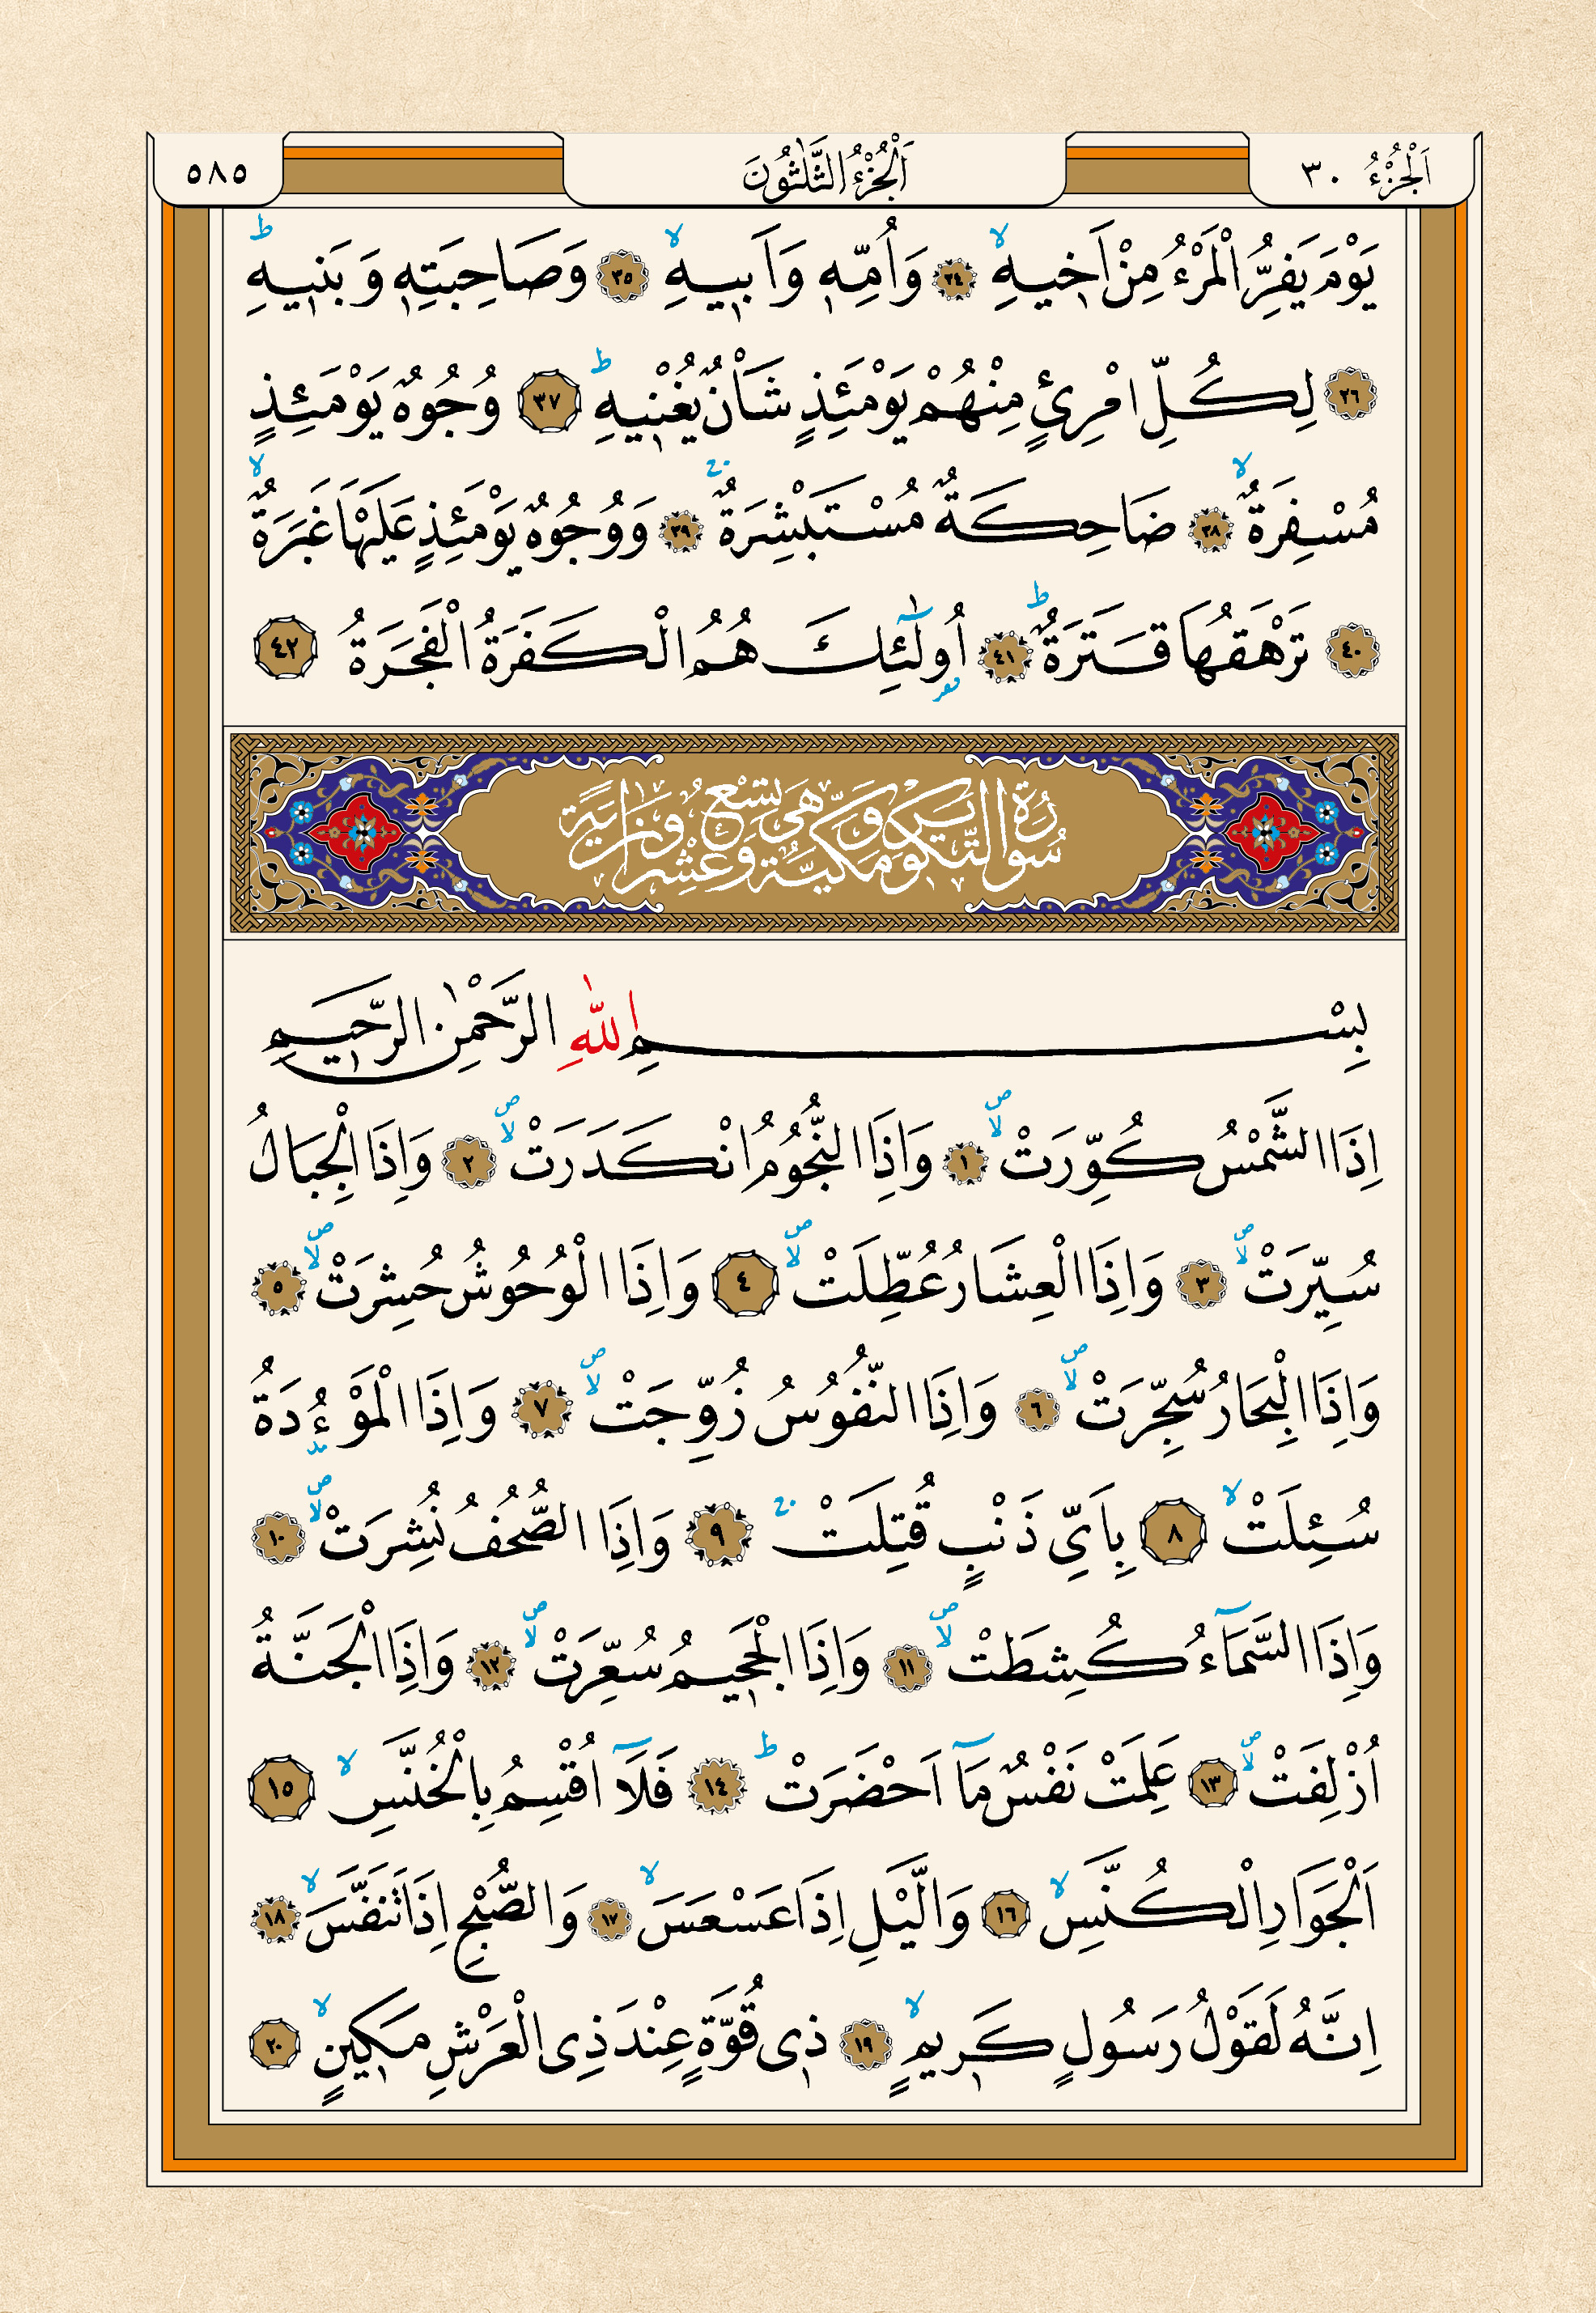 اَلْجُزْءُ ٣٠
اَلْجُزْءُ الثَّلٰثُونَ
٥٨٥
يَوْمَ يَفِرُّ الْمَرْءُ مِنْ اَخٖيهِۙ ﴿٣٤﴾ وَاُمِّهٖ وَاَبٖيهِۙ ﴿٣٥﴾ وَصَاحِبَتِهٖ وَبَنٖيهِؕ
﴿٣٦﴾ لِكُلِّ امْرِئٍ مِنْهُمْ يَوْمَئِذٍ شَاْنٌ يُغْنٖيهِؕ ﴿٣٧﴾ وُجُوهٌ يَوْمَئِذٍ
مُسْفِرَةٌۙ ﴿٣٨﴾ ضَاحِكَةٌ مُسْتَبْشِرَةٌۚ ﴿٣٩﴾ وَوُجُوهٌ يَوْمَئِذٍ عَلَيْهَا غَبَرَةٌۙ
﴿٤٠﴾ تَرْهَقُهَا قَتَرَةٌؕ ﴿٤١﴾ اُو۬لٰٓئِكَ هُمُ الْكَفَرَةُ الْفَجَرَةُ ﴿٤٢﴾
سُورَةُ التَّكْوٖيرِ مَكِّيَّةٌ وَهِيَ تِسْعٌ وَعِشْرُونَ اٰيَةً
بِسْمِ اللّٰهِ الرَّحْمٰنِ الرَّحٖيمِ
اِذَا الشَّمْسُ كُوِّرَتْۙ ﴿١﴾ وَاِذَا النُّجُومُ انْكَدَرَتْۙ ﴿٢﴾ وَاِذَا الْجِبَالُ
سُيِّرَتْۙ ﴿٣﴾ وَاِذَا الْعِشَارُ عُطِّلَتْۙ ﴿٤﴾ وَاِذَا الْوُحُوشُ حُشِرَتْۙ ﴿٥﴾
وَاِذَا الْبِحَارُ سُجِّرَتْۙ ﴿٦﴾ وَاِذَا النُّفُوسُ زُوِّجَتْۙ ﴿٧﴾ وَاِذَا الْمَوْءُ۫دَةُ
سُئِلَتْۙ ﴿٨﴾ بِاَيِّ ذَنْبٍ قُتِلَتْۚ ﴿٩﴾ وَاِذَا الصُّحُفُ نُشِرَتْۙ ﴿١٠﴾
وَاِذَا السَّمَٓاءُ كُشِطَتْۙ ﴿١١﴾ وَاِذَا الْجَحٖيمُ سُعِّرَتْۙ ﴿١٢﴾ وَاِذَا الْجَنَّةُ
اُزْلِفَتْۙ ﴿١٣﴾ عَلِمَتْ نَفْسٌ مَٓا اَحْضَرَتْؕ ﴿١٤﴾ فَلَٓا اُقْسِمُ بِالْخُنَّسِۙ ﴿١٥﴾
اَلْجَوَارِ الْكُنَّسِۙ ﴿١٦﴾ وَالَّيْلِ اِذَا عَسْعَسَۙ ﴿١٧﴾ وَالصُّبْحِ اِذَا تَنَفَّسَۙ ﴿١٨﴾
اِنَّهُ لَقَوْلُ رَسُولٍ كَرٖيمٍۙ ﴿١٩﴾ ذٖي قُوَّةٍ عِنْدَ ذِي الْعَرْشِ مَكٖينٍۙ ﴿٢٠﴾